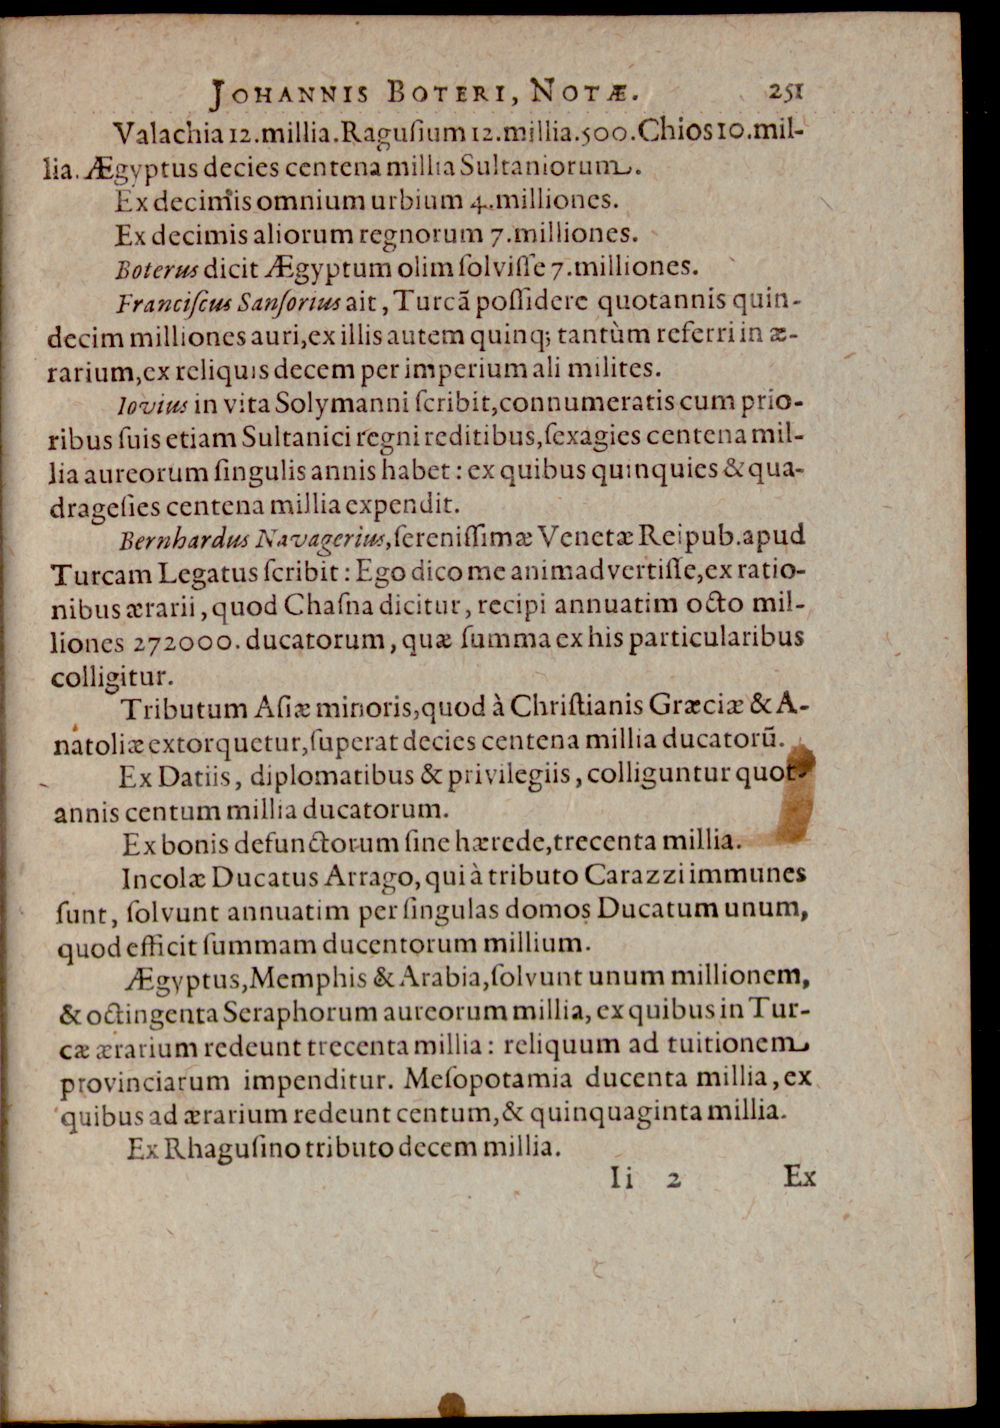 JOHANNIS BOTERI, NOTÆ. 251
Valachia 12. millia. Ragusium 12. millia. 500. Chios 10. mil-
lia. Ægyptus decies centena millia Sultaniorum.
Ex decimis omnium urbium 4. milliones.
Ex decimis aliorum regnorum 7. milliones.
Boterus dicit Ægyptum olim ſolviſſe 7. milliones.
Franciſcus Sanſorius ait, Turcã poſſidere quotannis quin-
decim milliones auri, ex illis autem quinq; tantùm referri in æ-
rarium, ex reliquis decem per imperium ali milites.
Iovius in vita Solymanni ſcribit, connumeratis cum prio-
ribus ſuis etiam Sultanici regni reditibus, ſexagies centena mil-
lia aureorum ſingulis annis habet: ex quibus quinquies & qua-
drageſies centena millia expendit.
Bernhardus Navagerius, ſereniſſimæ Venetæ Reipub. apud
Turcam Legatus ſcribit: Ego dico me animadvertiſſe, ex ratio-
nibus ærarii, quod Chaſna dicitur, recipi annuatim octo mil-
liones 272000. ducatorum, quæ ſumma ex his particularibus
colligitur.
Tributum Aſiæ minoris, quod à Chriſtianis Græciæ & A-
natoliæ extorquetur, ſuperat decies centena millia ducatorũ.
Ex Datiis, diplomatibus & privilegiis, colliguntur quot-
annis centum millia ducatorum.
Ex bonis defunctorum ſine hærede, trecenta millia.
Incolæ Ducatus Arrago, qui à tributo Carazzi immunes
ſunt, ſolvunt annuatim per ſingulas domos Ducatum unum,
quod efficit ſummam ducentorum millium.
Ægyptus, Memphis & Arabia, ſolvunt unum millionem,
& octingenta Seraphorum aureorum millia, ex quibus in Tur-
cæ ærarium redeunt trecenta millia: reliquum ad tuitionem
provinciarum impenditur. Meſopotamia ducenta millia, ex
quibus ad ærarium redeunt centum, & quinquaginta millia.
Ex Rhaguſino tributo decem millia.
Ii 2 Ex